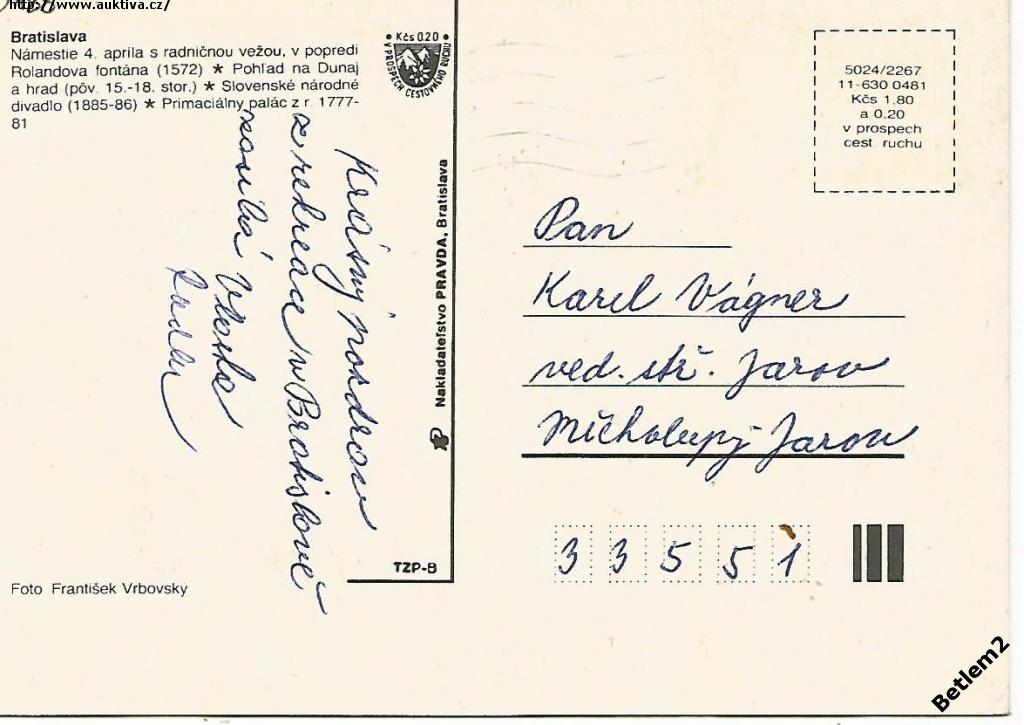 http://www.auktiva.cz/
Bratislava
Námestie 4. apríla s radničnou vežou, v popredí
Rolandova fontána (1572) ★ Pohľad na Dunaj
a hrad (pôv. 15.-18. stor.) ★ Slovenské národné
divadlo (1885-86) ★ Primaciálny palác z r. 1777-
81
Kčs 0.20
V PROSPECH CESTOVNÉHO RUCHU
5024/2267
11-630 0481
Kčs 1,80
a 0.20
v prospech
cest. ruchu
Krásný pozdrav
z rekreace v Bratislavě
zasílá Vlasta
Nakladateľstvo PRAVDA, Bratislava
TZP-B
Pan
Karel Vágner
ved. stř. Jarov
Míčholupy-Jarov
33551
Foto František Vrbovský
Betlem2